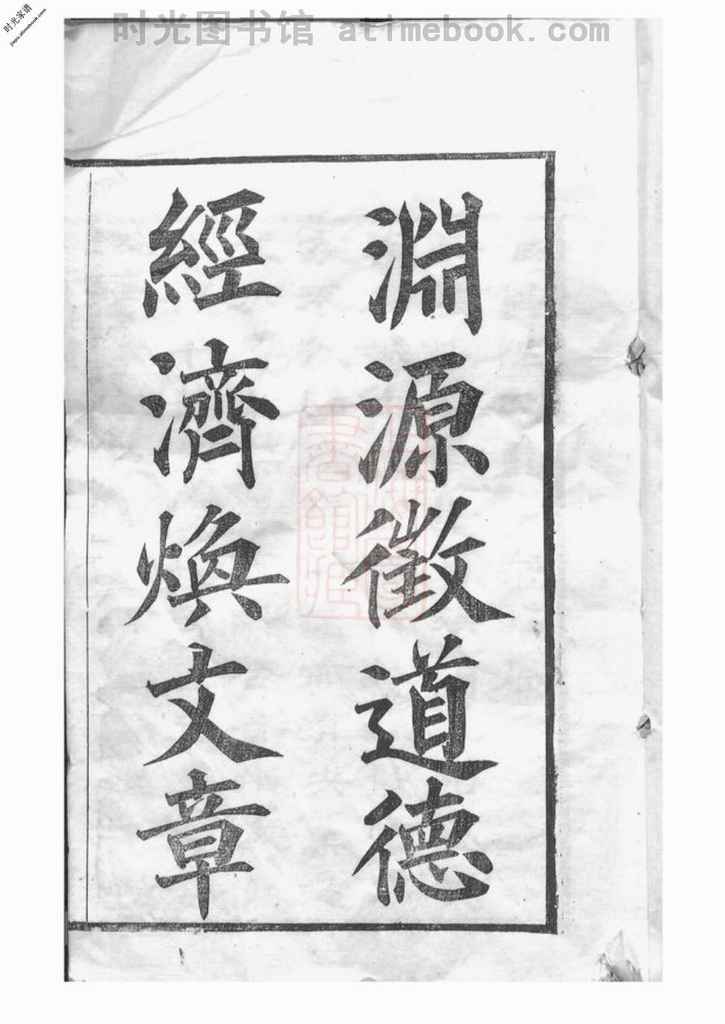 时光图书馆 atimebook.com
时光家谱
淵源徵道德
經濟煥文章